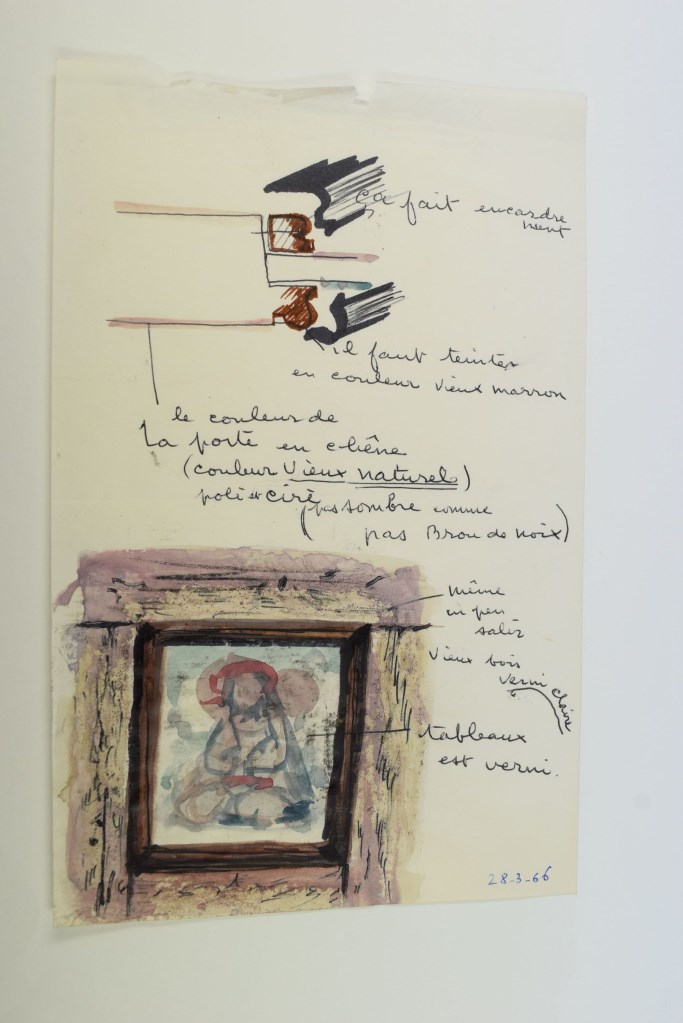 ça fait encardre
ment
il faut teinter
en couleur vieux marron
le couleur de
La porte en chêne
(couleur Vieux naturels)
poli et ciré
(pas sombre comme
pas Brou de noix)
même
un peu
salir
Vieux bois
verni claire
tableaux
est verni.
28-3-66